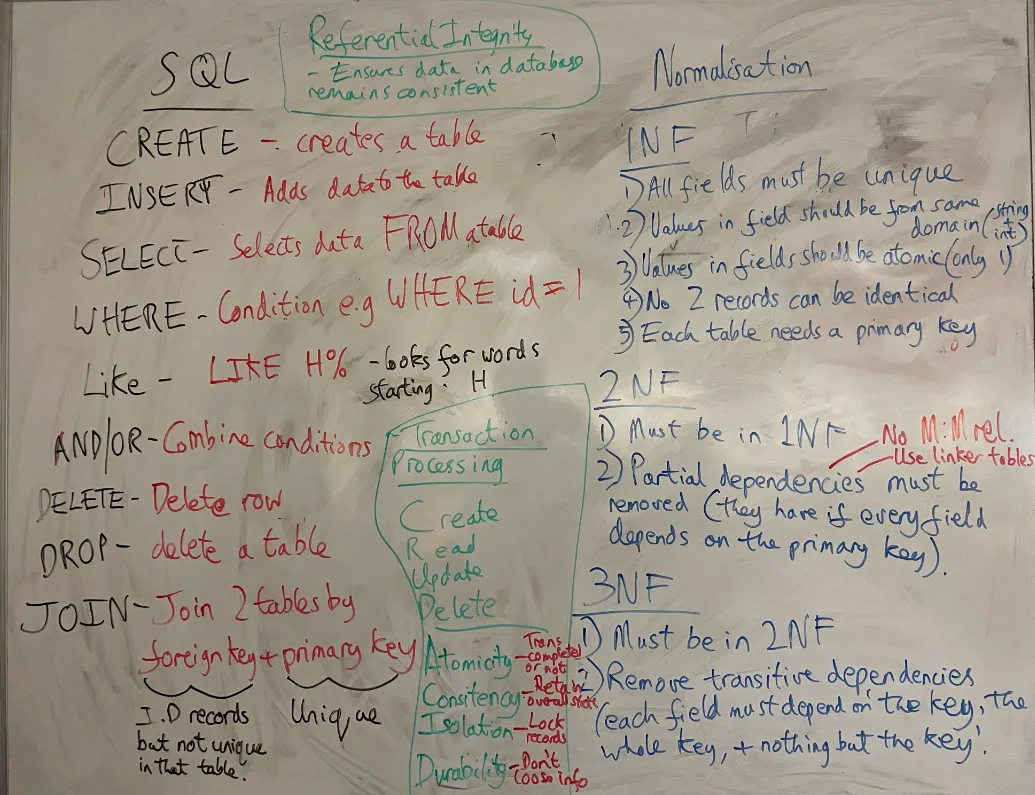 SQL
CREATE - creates a table
INSERT - Adds data to the table
SELECT - Selects data FROM a table
WHERE - Condition e.g WHERE id = 1
Like - LIKE H% - looks for words
starting: H
AND/OR - Combine conditions
DELETE - Delete row
DROP - delete a table
JOIN - Join 2 tables by
foreign key + primary key
I.D records
but not unique
in that table.
Unique
Referential Integrity
- Ensures data in database
remains consistent
Transaction
Processing
Create
Read
Update
Delete
Atomicity - Trans
completed
or not
Consitency - Retain
overall state
Isolation - Lock
records
Durability - Don't
loose info
Normalisation
1NF
1) All fields must be unique
2) Values in field should be from same
domain (string + int)
3) Values in fields should be atomic (only 1)
4) No 2 records can be identical
5) Each table needs a primary key
2NF
1) Must be in 1NF
No M:M rel.
Use linker tables
2) Partial dependencies must be
removed (they have if every field
depends on the primary key).
3NF
1) Must be in 2NF
2) Remove transitive dependencies
(each field must depend on the key, the
whole key, + nothing but the key'.